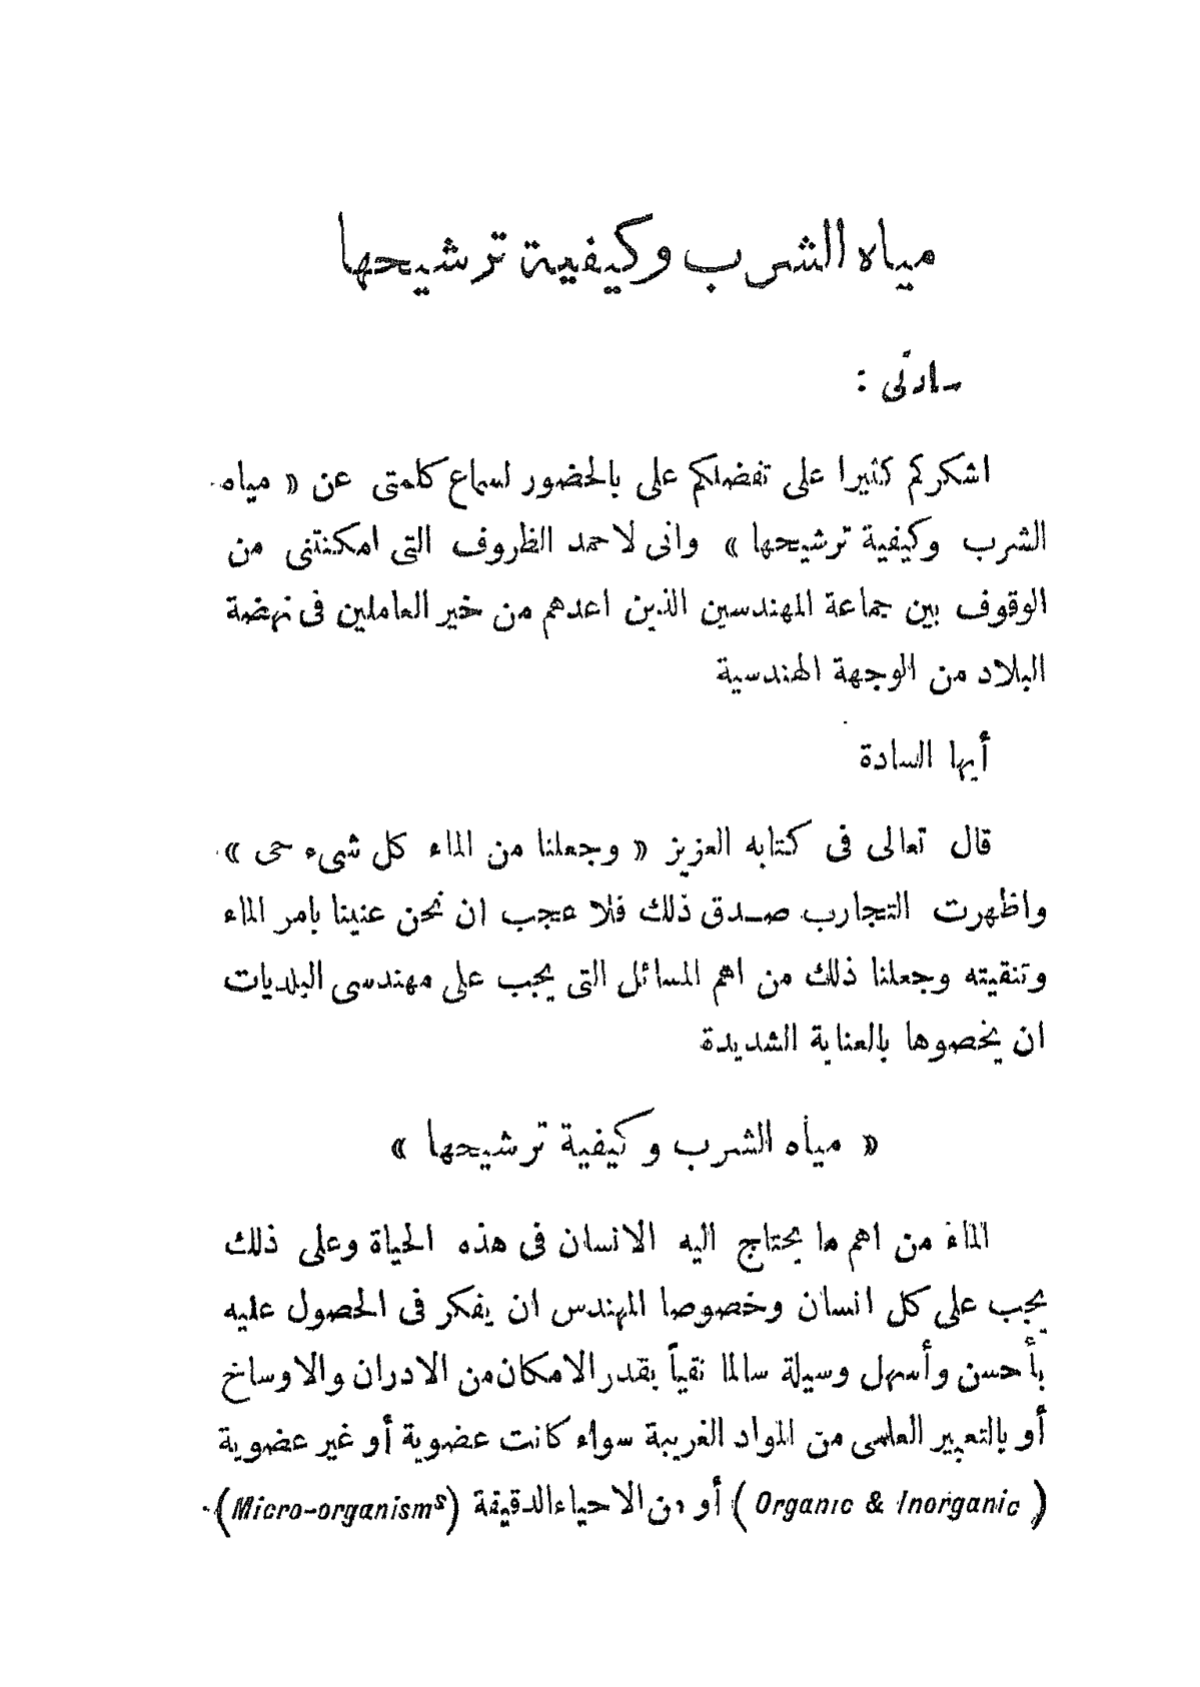 مياه الشرب وكيفية ترشيحها
سادتى :
اشكركم كثيرا على تفضلكم على بالحضور لسماع كلمتى عن « مياه
الشرب وكيفية ترشيحها » وانى لاحمد الظروف التى امكنتنى من
الوقوف بين جماعة المهندسين الذين اعدهم من خير العاملين فى نهضة
البلاد من الوجهة الهندسية
أيها السادة
قال تعالى فى كتابه العزيز « وجعلنا من الماء كل شىء حى »
واظهرت التجارب صدق ذلك فلا عجب ان نحن عنينا بامر الماء
وتنقيته وجعلنا ذلك من اهم المسائل التى يجب على مهندسى البلديات
ان يخصوها بالعناية الشديدة
« مياه الشرب وكيفية ترشيحها »
الماء من اهم ما يحتاج اليه الانسان فى هذه الحياة وعلى ذلك
يجب على كل انسان وخصوصا المهندس ان يفكر فى الحصول عليه
بأحسن وأسهل وسيلة سالما نقياً بقدر الامكان من الادران والاوساخ
أو بالتعبير العلمى من المواد الغريبة سواء كانت عضوية أو غير عضوية
( Organic & Inorganic ) أو من الاحياء الدقيقة (Micro-organisms)